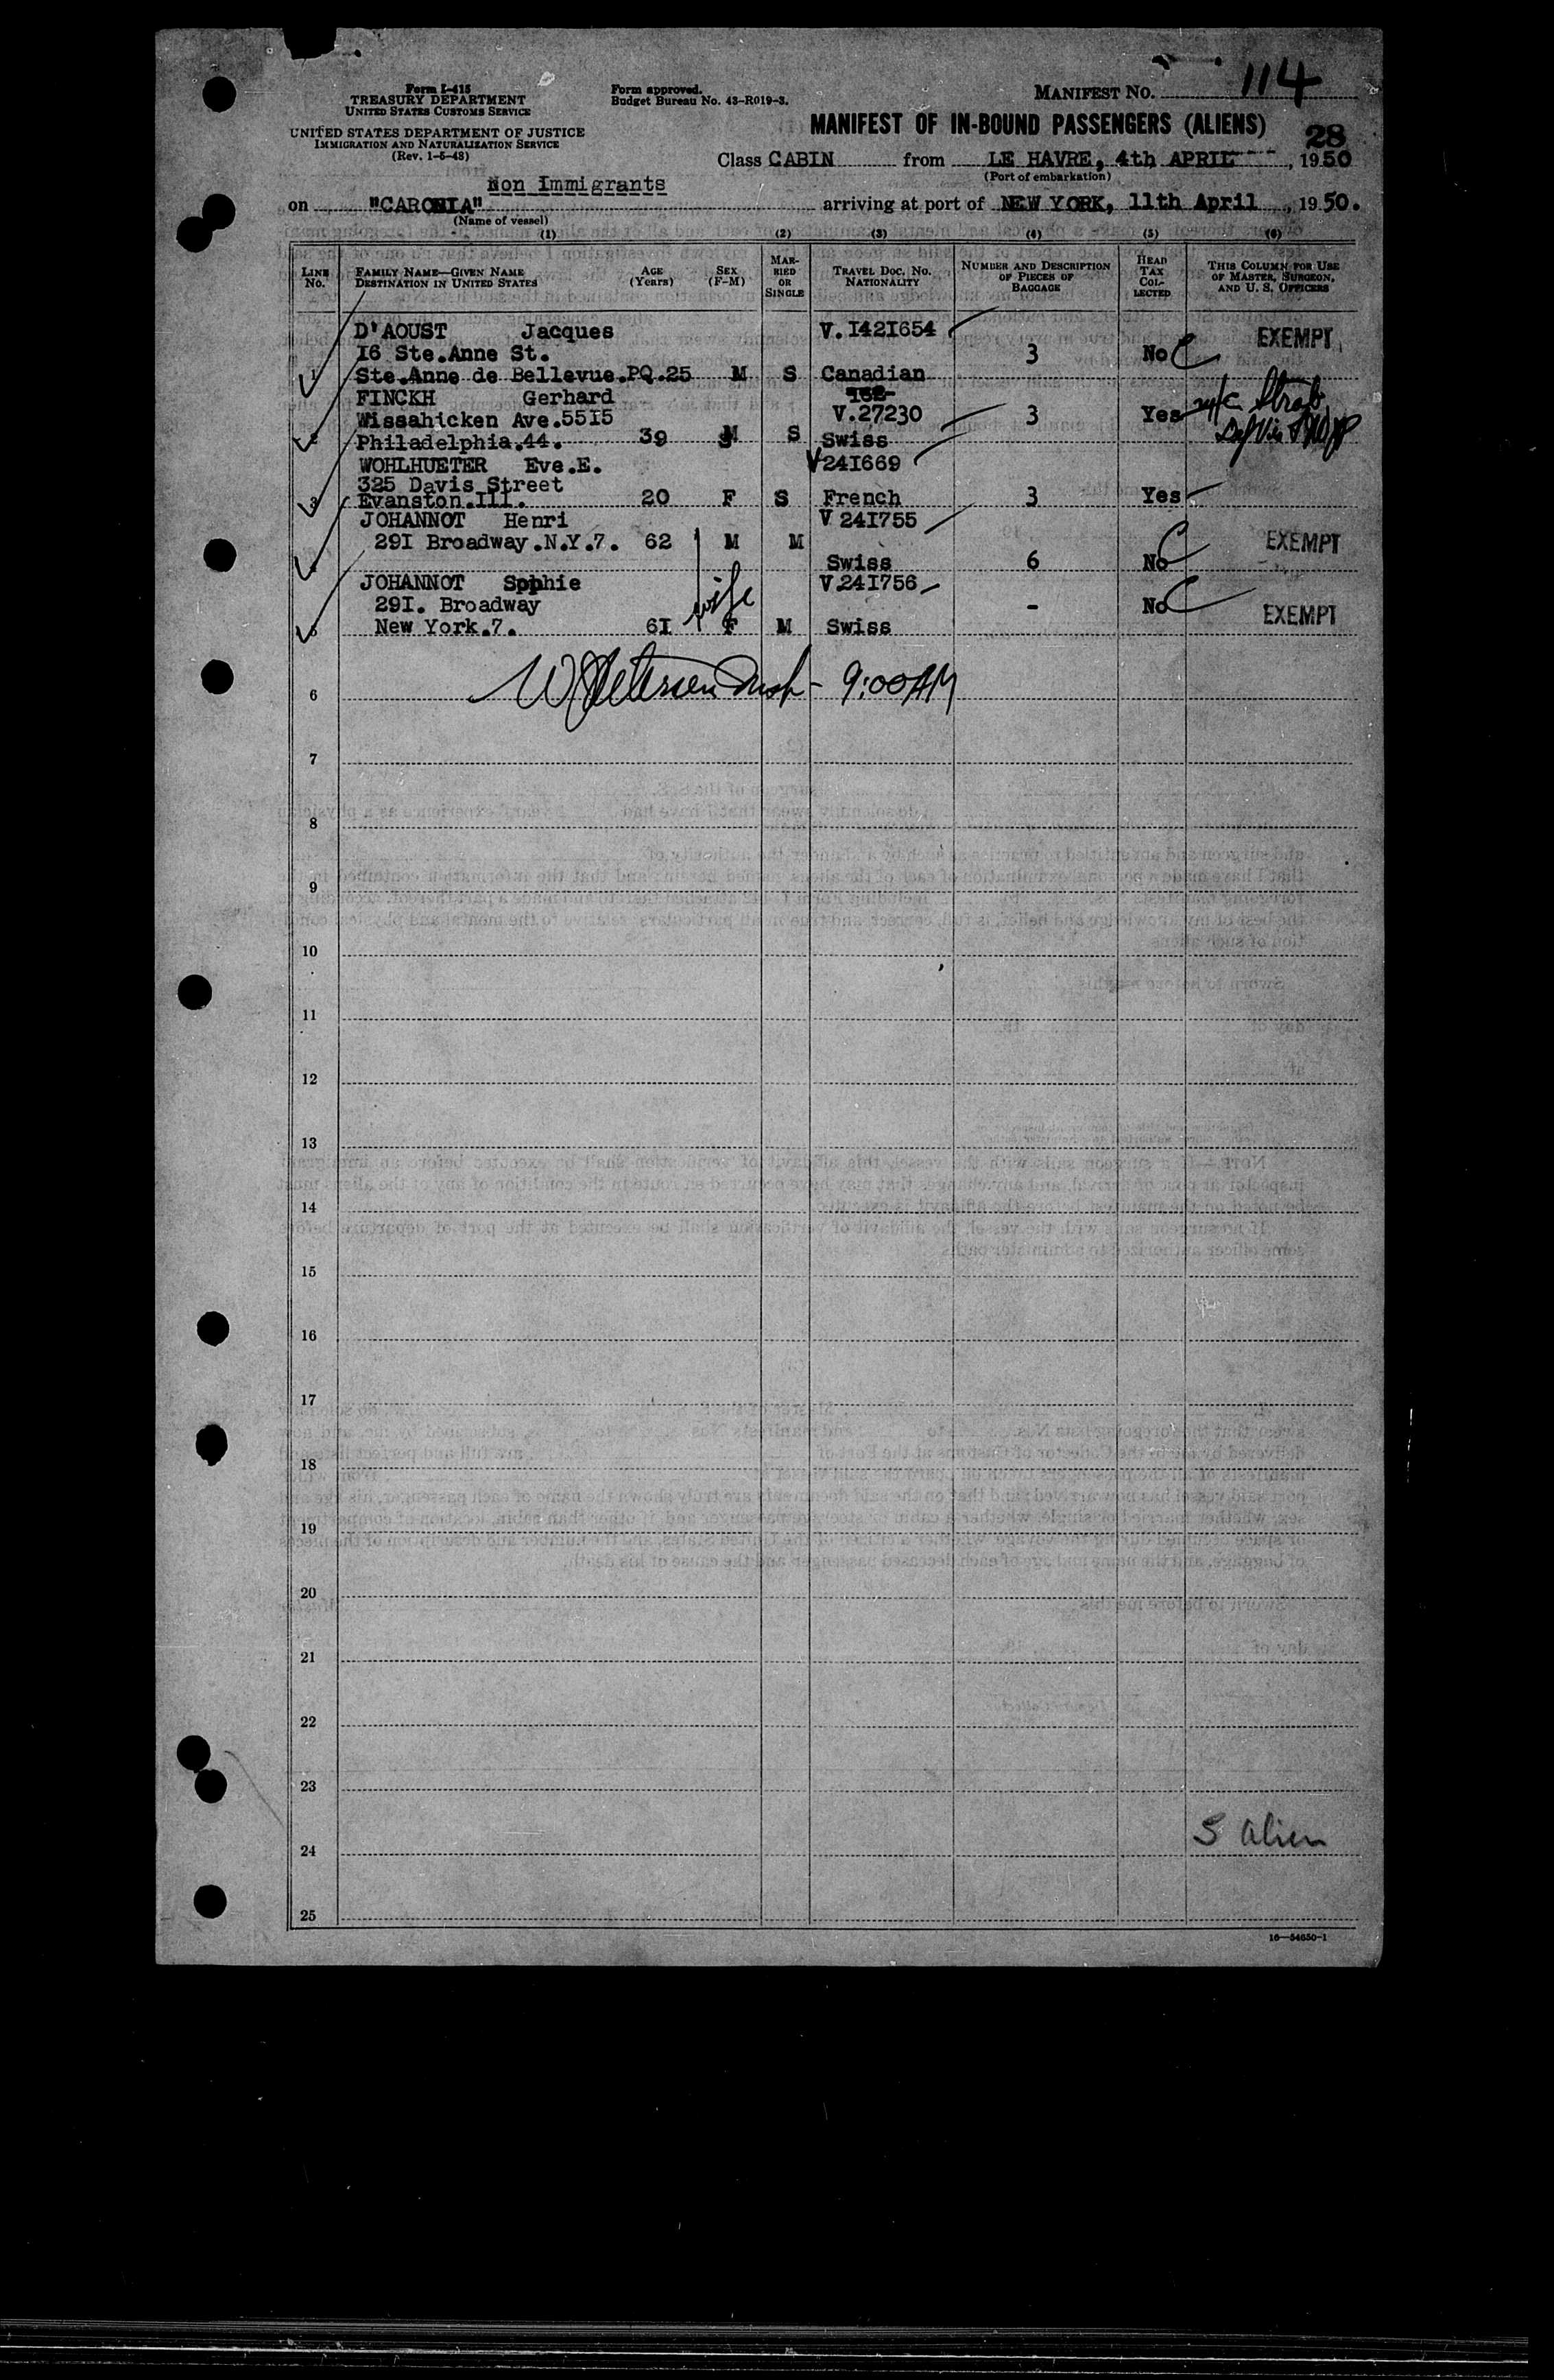 Form I-415
TREASURY DEPARTMENT
UNITED STATES CUSTOMS SERVICE
UNITED STATES DEPARTMENT OF JUSTICE
IMMIGRATION AND NATURALIZATION SERVICE
(Rev. 1-5-48)
Form approved.
Budget Bureau No. 43-R019-3.
MANIFEST No. 114
MANIFEST OF IN-BOUND PASSENGERS (ALIENS)
28
Class CABIN from LE HAVRE, 4th APRIL, 1950
(Port of embarkation)
Non Immigrants
on "CARONIA" arriving at port of NEW YORK, 11th April, 1950.
(Name of vessel)
(1) (2) (3) (4) (5) (6)
LINE No. FAMILY NAME—GIVEN NAME DESTINATION IN UNITED STATES AGE (YEARS) SEX (F-M) MARRIED OR SINGLE TRAVEL DOC. NO. NATIONALITY NUMBER AND DESCRIPTION OF PIECES OF BAGGAGE HEAD TAX COLLECTED THIS COLUMN FOR USE OF MASTER, SURGEON, AND U. S. OFFICERS
D'AOUST Jacques V.I42I654 EXEMPT
I6 Ste.Anne St. 3 No
1 Ste.Anne de Bellevue.PQ.25 M S Canadian
FINCKH Gerhard
Wissahicken Ave.55I5 V.27230 3 Yes
2 Philadelphia.44. 39 M S Swiss
WOHLHUETER Eve.E. V24I669
325 Davis Street
3 Evanston.Ill. 20 F S French 3 Yes
JOHANNOT Henri V 24I755
29I Broadway.N.Y.7. 62 M M EXEMPT
4 Swiss 6 No
JOHANNOT Sophie V.24I756
29I. Broadway wife - No EXEMPT
5 New York.7. 6I F M Swiss
6 9:00AM
7
8
9
10
11
12
13
14
15
16
17
18
19
20
21
22
23
5 alien
24
25
16—54650-1